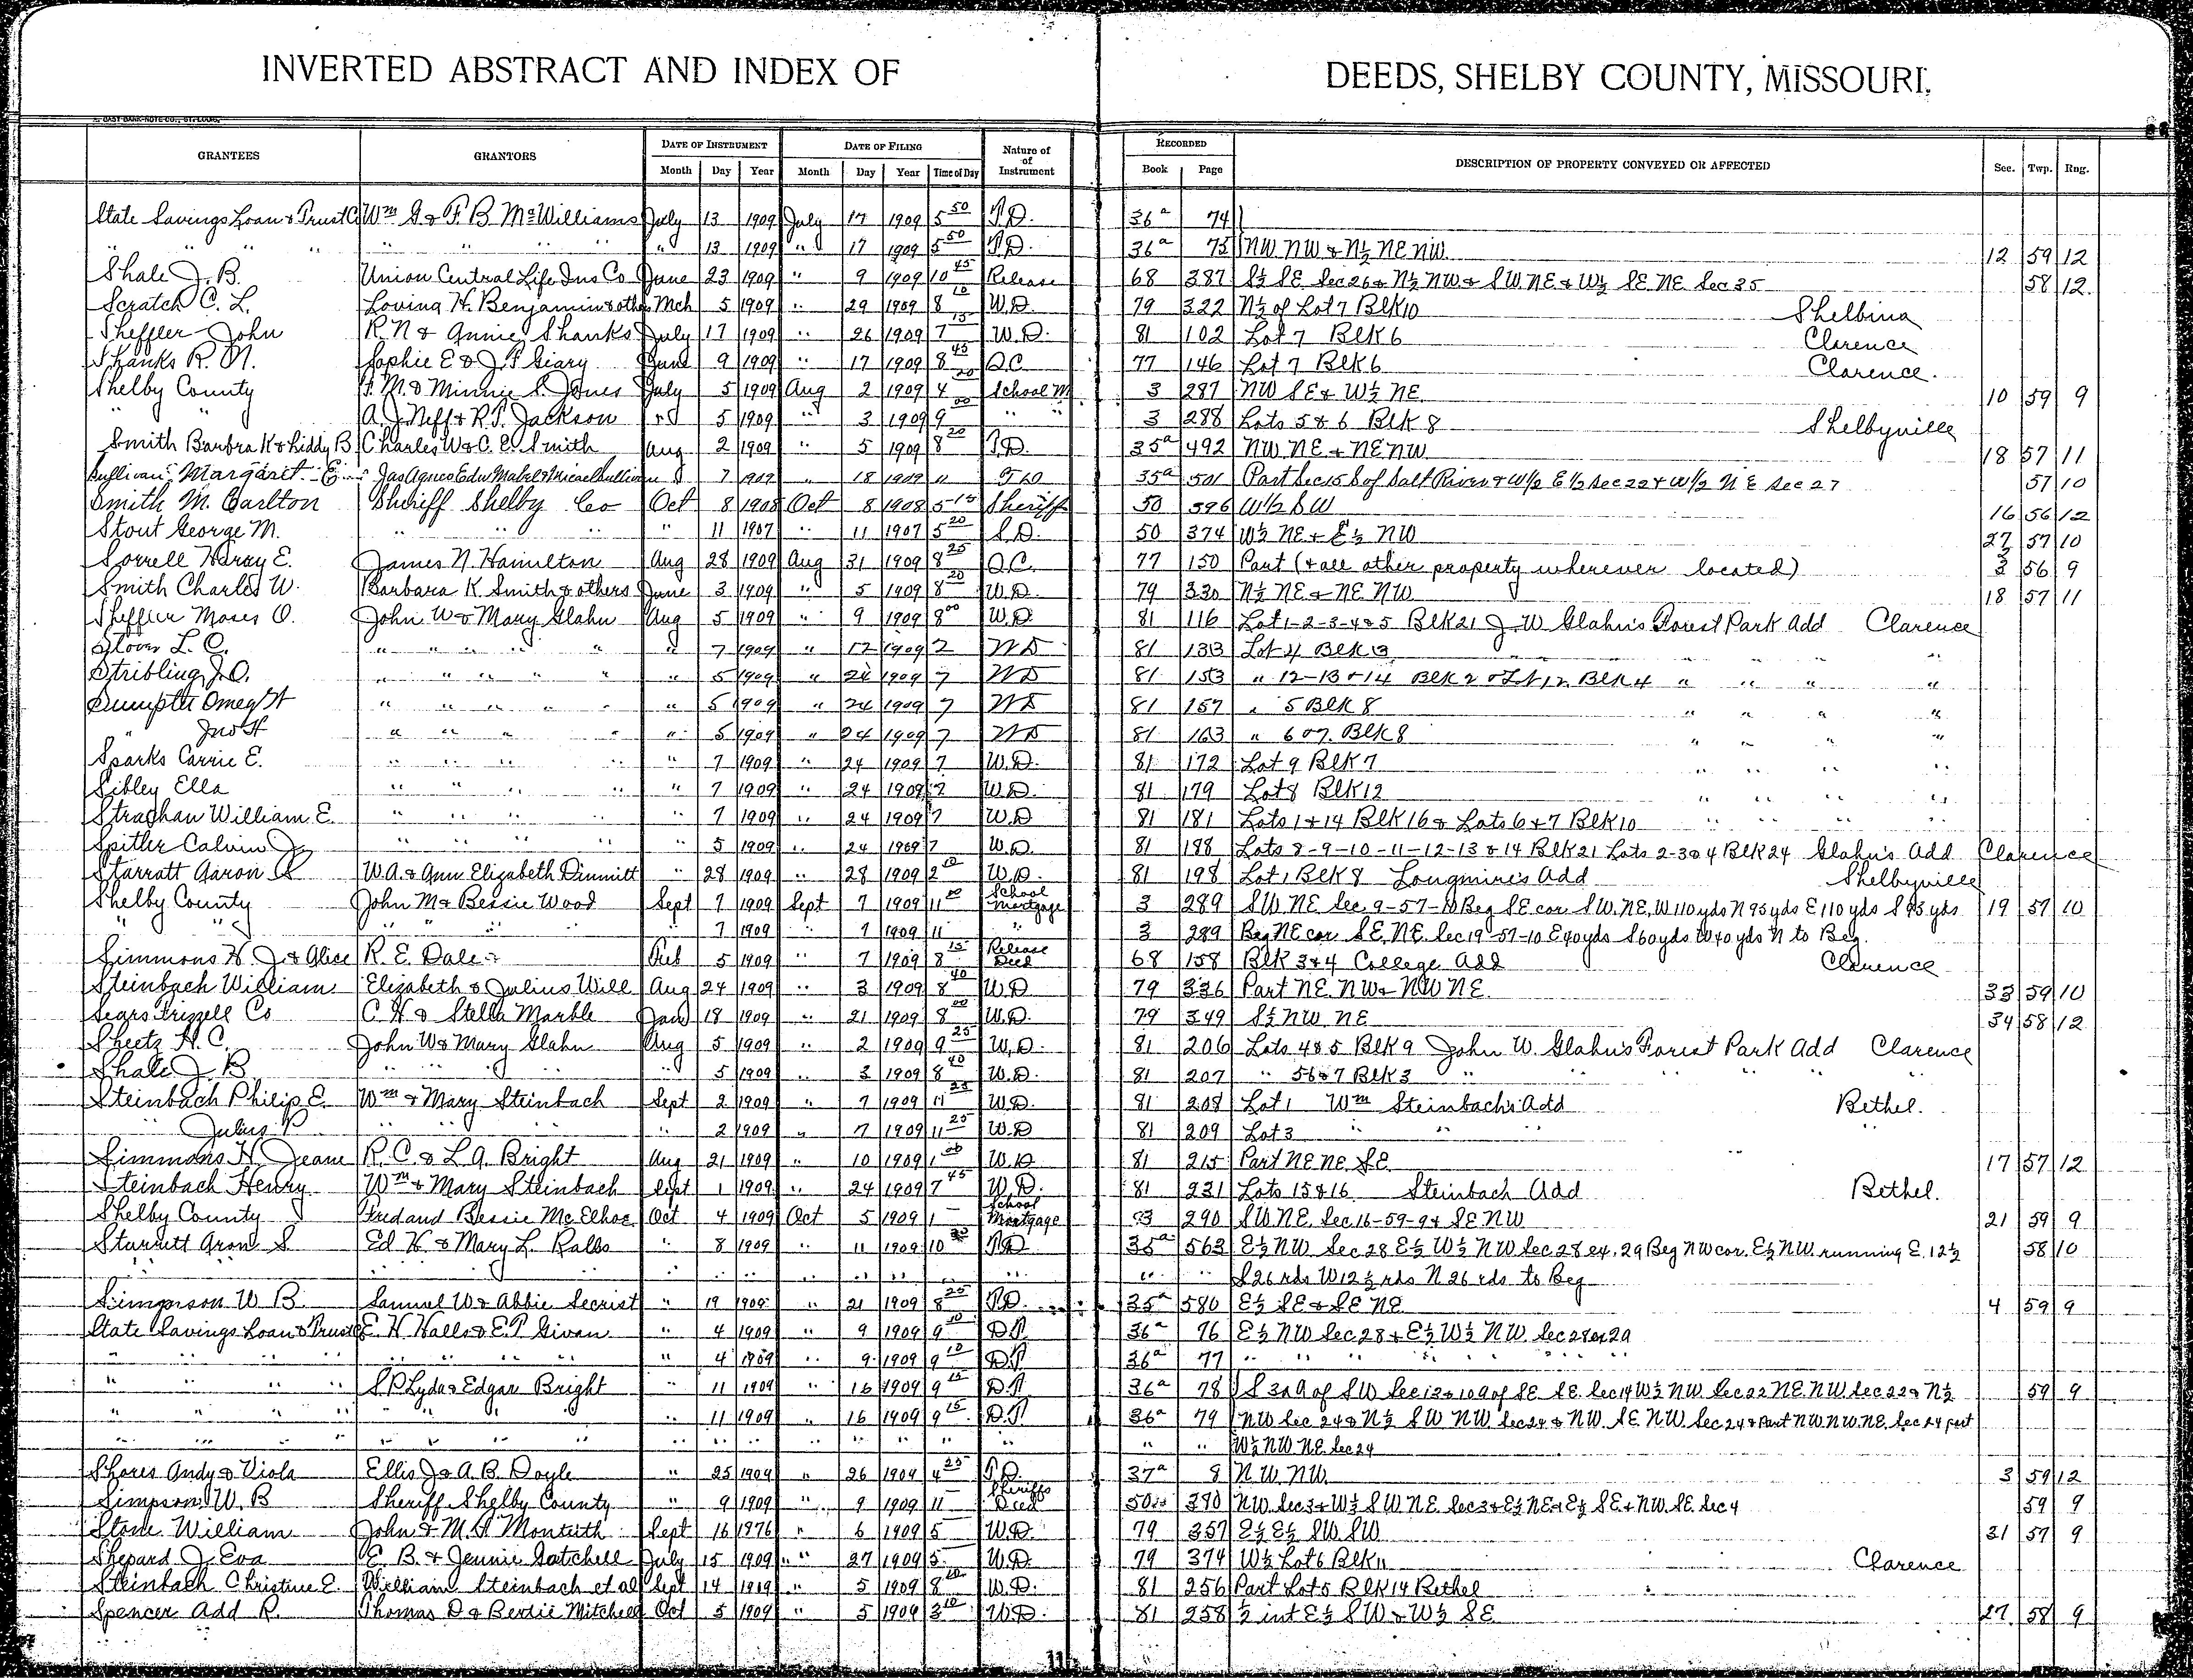 INVERTED ABSTRACT AND INDEX OF DEEDS, SHELBY COUNTY, MISSOURI.
GRANTEES GRANTORS DATE OF INSTRUMENT DATE OF FILING Nature of Instrument RECORDED DESCRIPTION OF PROPERTY CONVEYED OR AFFECTED Sec. Twp. Rng.
Month Day Year Month Day Year Time of Day Book Page
State Savings Loan & Trust Co Wm G. & F. B. McWilliams July 13 1909 July 17 1909 5 50 T.D. 36a 74
" " " " " " " " " 13 1909 " 17 1909 5 50 T.D. 36a 75 NW NW & N½ NE NW 12 59 12
Shale J. B. Union Central Life Ins Co June 23 1909 " 9 1909 10 45 Release 68 387 S½ SE Sec 26 & N½ NW & SW NE & W½ SE NE Sec 35 58 12
Scratch C. L. Loving H. Benjamin & othe Mch 5 1909 " 29 1909 8 10 W.D. 79 322 N½ of Lot 7 Blk 10 Shelbina
Sheffler John R. N & Annie Shanks July 17 1909 " 26 1909 7 15 W.D. 81 102 Lot 7 Blk 6 Clarence
Shanks R. N. Sophie E & J. F. Giary June 9 1909 " 17 1909 8 45 Q.C. 77 146 Lot 7 Blk 6 Clarence.
Shelby County F. M. & Minnie S. Jones July 5 1909 Aug 2 1909 4 20 School M 3 287 NW SE & W½ NE 10 59 9
" " A. J. Neff & R. T. Jackson 5 1909 " 3 1909 9 00 " " 3 288 Lots 5 & 6 Blk 8 Shelbyville
Smith Barbra K & Liddy B Charles W & C. E. Smith Aug 2 1909 " 5 1909 8 20 T.D. 35a 492 NW NE & NE NW 18 57 11
Sullivan Margaret E Jas Agnes Edw Mabel & Micael Sullivan 7 1909 " 18 1909 11 35a 501 Part Sec 15 S of Salt River & W½ E½ Sec 22 & W½ NE Sec 27 57 10
Smith M. Carlton Sheriff Shelby Co Oct 8 1908 Oct 8 1908 5 15 Sheriff 50 596 W½ SW 16 56 12
Stout George M. " " " " 11 1907 " 11 1907 5 20 S.D. 50 374 W½ NE & E½ NW 27 57 10
Sorrell Harry E. James N. Hamilton Aug 28 1909 Aug 31 1909 8 25 Q.C. 77 150 Part (& all other property wherever located) 3 56 9
Smith Charles W. Barbara K Smith & others June 3 1909 " 5 1909 8 20 W.D. 79 330 N½ NE & NE NW 18 57 11
Sheffler Moses O. John W & Mary Glahn Aug 5 1909 " 9 1909 8 00 W.D. 81 116 Lot 1-2-3-4 & 5 Blk 21 J. W Glahn's Forest Park Add Clarence
Slover L. C. " " " " " " 7 1909 " 12 1909 2 WD 81 133 Lot 4 Blk 3 " " " "
Stribling J. O. " " " " " " 5 1909 " 24 1909 7 WD 81 153 " 12-13 & 14 Blk 2 & Lot 12 Blk 4 " " " "
Sumpter Omeg H " " " " " " 5 1909 " 24 1909 7 WD 81 157 " 5 Blk 8 " " " "
" Jno H " " " " " 5 1909 " 24 1909 7 WD 81 163 " 6 & 7. Blk 8 " " " "
Sparks Carrie E. " " " " " 7 1909 " 24 1909 7 W.D. 81 172 Lot 9 Blk 7 " " " "
Sibley Ella " " " " " 7 1909 " 24 1909 7 W.D. 81 179 Lot 8 Blk 12 " " " "
Straghan William E. " " " " " 7 1909 " 24 1909 7 W.D 81 181 Lots 1 & 14 Blk 16 & Lots 6 & 7 Blk 10 " " " "
Spitler Calvin J. " " " " 5 1909 " 24 1909 7 W.D. 81 188 Lots 8-9-10-11-12-13 & 14 Blk 21 Lots 2-3 & 4 Blk 24 Glahn's Add Clarence
Starratt Aaron S W. A. & Ann Elizabeth Dimmitt " 28 1909 " 28 1909 2 10 W.D. 81 198 Lot 1 Blk 8 Longmire's Add Shelbyville
Shelby County John M & Bessie Wood Sept 7 1909 Sept 7 1909 11 00 School Mortgage 3 289 SW NE Sec. 9-57-10 Beg SE cor SW. NE, W 110 yds N 95 yds E 110 yds S 95 yds 19 57 10
" " " " " 7 1909 " 7 1909 11 " 3 289 Beg NE cor SE NE Sec 19-57-10 E 40 yds S 60 yds W 40 yds N to Beg.
Simmons H. J & Alice R. E. Dale & Feb 5 1909 " 7 1909 8 15 Release Deed 68 158 Blk 3 & 4 College Add Clarence
Steinbach William Elizabeth & Julius Will Aug 24 1909 " 3 1909 8 40 W.D 79 336 Part NE NW & NW NE 33 59 10
Sears Frizzell Co C. H & Stella Marble Jan 18 1909 " 21 1909 8 00 W.D. 79 349 S½ NW NE 34 58 12
Sheetz H. C. John W & Mary Glahn Aug 5 1909 " 2 1909 9 25 W.D. 81 206 Lots 4 & 5 Blk 9 John W. Glahn's Forest Park Add Clarence
Shale J. B " " " " 5 1909 " 3 1909 8 40 W.D. 81 207 " 5 6 & 7 Blk 3 " " " " "
Steinbach Philip E. Wm & Mary Steinbach Sept 2 1909 " 7 1909 11 25 W.D. 81 208 Lot 1 Wm Steinbach's Add Bethel.
" Julius P " " " " 2 1909 " 7 1909 11 25 W.D 81 209 Lot 3 " " "
Simmons H Jeane R. C. & L. A. Bright Aug 21 1909 " 10 1909 1 00 W.D 81 215 Part NE NE SE 17 57 12
Steinbach Henry Wm & Mary Steinbach Sept 1 1909 " 24 1909 7 45 W.D. 81 231 Lots 15 & 16 Steinbach Add Bethel.
Shelby County Fred and Bessie McElhoe Oct 4 1909 Oct 5 1909 1 School Mortgage 3 290 SW NE Sec 16-59-9 & SE NW 21 59 9
Sturrett Aron S Ed H. & Mary L. Ralls " 8 1909 " 11 1909 10 30 T.D 35a 563 E½ NW Sec 28 E½ W½ NW Sec 28 ex. 29 Beg NW cor. E½ NW. running E. 12½ 58 10
" " " " " " " " " " " " S 26 rds W 12½ rds N 26 rds to Beg
Simpson W. B. Samuel W & Abbie Secrist " 19 1909 " 21 1909 8 25 T.D. 35a 580 E½ SE & SE NE 4 59 9
State Savings Loan & Trust Co E. H. Halls & E. P. Givan " 4 1909 " 9 1909 9 10 D.T 36a 76 E½ NW Sec 28 & E½ W½ NW Sec 28 ex 2a
" " " " " " " " " 4 1909 " 9 1909 9 10 D.T 36a 77 " " " " " " "
" " " " S. P. Lyda & Edgar Bright " 11 1909 " 16 1909 9 15 D.T. 36a 78 S 3a 9 of SW Sec 13 & 10 a of SE SE Sec 14 W½ NW Sec 22 NE NW Sec 22 & N½ 59 9
" " " " " " " " 11 1909 " 16 1909 9 15 D.T 36a 79 NW Sec 24 & N½ SW NW Sec 24 & NW. SE NW Sec 24 & Part NW. NW. NE. Sec 24 part
" " " " " " " " " " " " " " " " W½ NW NE Sec 24
Shores Andy & Viola Ellis J & A. B. Doyle " 25 1909 " 26 1909 4 25 T.D. 37a 8 NW NW 3 59 12
Simpson W. B Sheriff Shelby County " 9 1909 " 9 1909 11 Sheriffs Deed 50 380 NW Sec 3 & W½ SW NE Sec 3 & E½ NE & E½ SE & NW SE Sec 4 59 9
Stone William John & M. A. Monteith Sept 16 1876 " 6 1909 5 W.D. 79 357 E½ E½ SW SW 31 57 9
Shepard J. Eva E. B. & Jennie Gatchell July 15 1909 " 27 1909 5 W.D. 79 374 W½ Lot 6 Blk 11 Clarence
Steinbach Christine E. William Steinbach et al Sept 14 1909 " 5 1909 8 20 W.D. 81 256 Part Lot 5 Blk 14 Bethel
Spencer Add R. Thomas D & Bertie Mitchell Oct 5 1909 " 5 1909 3 10 W.D. 81 258 ½ int E½ SW & W½ SE 27 58 9